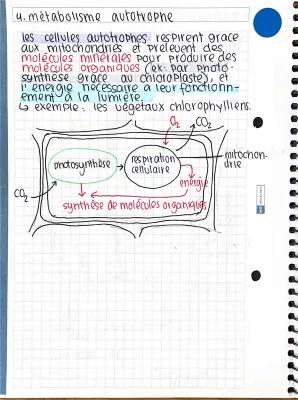 4. métabolisme autotrophe
les cellules autotrophes respirent grace
aux mitochondries et prélèvent des
molécules minérales pour produire des
molécules organiques (ex: par photo-
synthèse grace au chloroplaste), et
l'énergie nécessaire à leur fonctionn-
ement à la lumière.
↳ exemple: les végétaux chlorophylliens.
O₂
CO₂
photosynthèse
respiration
cellulaire
mitochon-
drie
énergie
CO₂
synthèse de molécules organiques